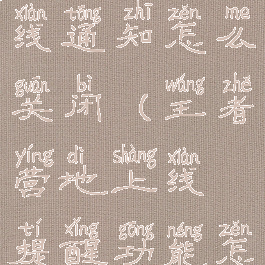 xiàn tōng zhī zěn me
线通知怎么
guān bì wáng zhě
关闭（王者
yíng dì shàng xiàn
营地上线
tí xǐng gōng néng zěn
提醒功能怎